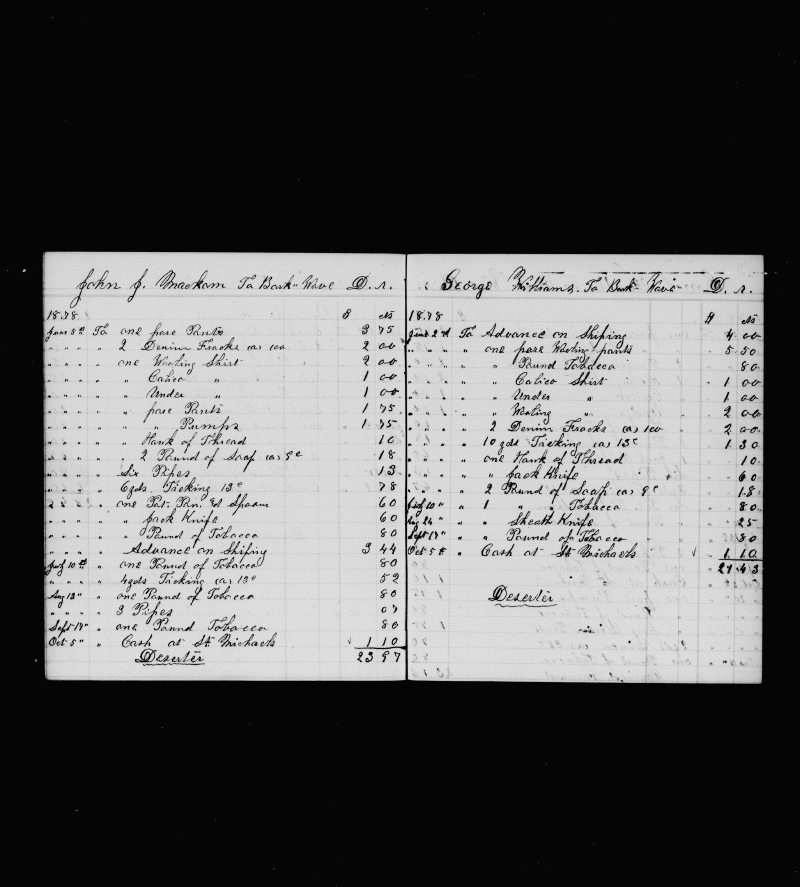 John J. Mackam To Bark Wave D. r.
1878 $ cts
June 5th To one pare Pants 3 75
" " " " 2 Denim Frocks @ 100 2 00
" " " " one Woolling Shirt 2 00
" " " " " Calico " 1 00
" " " " " Under " 1 00
" " " " " pare Pants 1 75
" " " " " " Pumps 1 75
" " " " " Hank of Thread 10
" " " " 2 Pound of Soap @ 9c 18
" " " " Six Pipes 13
" " " " 6yds Ticking 13c 78
" " " " one Pot. Pan. & Spoon 60
" " " " " Jack Knife 60
" " " " " Pound of Tobacco 80
" " " " Advance on Shiping 3 44
July 10th " one Pound of Tobacco 80
" " " " 4yds Ticking @ 13c 52
Aug 13" " one Pound of Tobacco 80
" " " " 3 Pipes 07
Sept 17" " one Pound Tobacco 80
Oct 5" " Cash at St. Michaels √ 1 10
Deserter 23 97
George Williams. To Bark Wave D. r.
1878 $ cts
June 2d To Advance on Shiping 4 00
" " " " one pare Woolling pants 5 50
" " " " " Pound Tobacco 80
" " " " " Calico Shirt 1 00
" " " " " Under " 1 00
" " " " " Wooling " 2 00
" " " " 2 Denim Frocks @ 100 2 00
" " " " 10 yds Ticking @ 13c 1 30
" " " " one Hank of Thread 10
" " " " " Jack Knife 60
" " " " 2 Pound of Soap @ 9c 18
July 10" " 1 " " Tobacco 80
Aug 24" " " Sheath Knife 25
Sept 17" " " Pound of Tobacco 80
Oct 5th " Cash at St. Michaels √ 1 10
21 43
Deserter